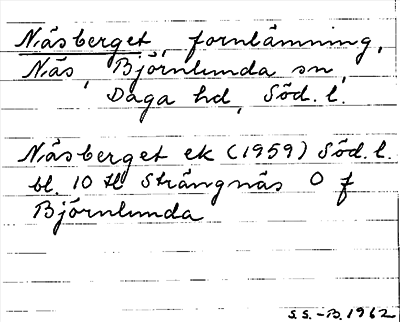 Näsberget, fornlämning,
Näs, Björnlunda sn,
Daga hd, Söd. l.
Näsberget ek (1959) Söd. l.
bl. 10 Strängnäs O f
Björnlunda
S.S.-B. 1962